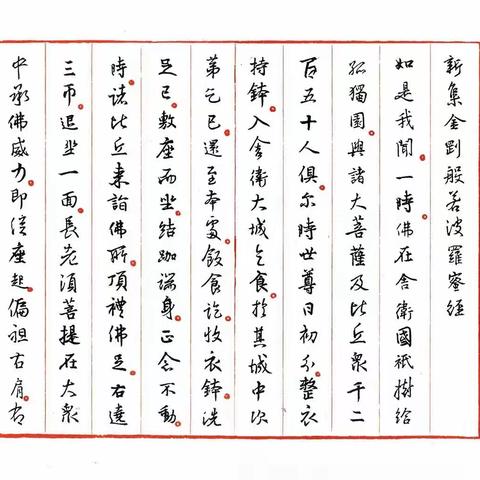 新集金剛般若波羅蜜經
如是我聞一時佛在舍衛國祇樹給
孤獨園與諸大菩薩及比丘眾千二
百五十人俱尔時世尊日初分整衣
持鉢入舍衛大城乞食於其城中次
第乞已還至本處飯食訖收衣鉢洗
足已敷座而坐結跏端身正念不動
時諸比丘來詣佛所頂禮佛足右遶
三帀退坐一面長老須菩提在大眾
中承佛威力即從座起偏袒右肩右